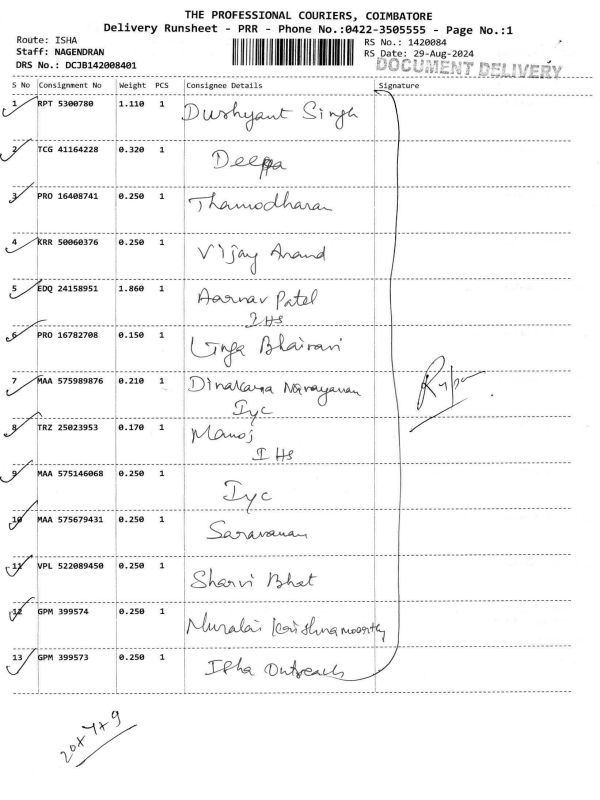 THE PROFESSIONAL COURIERS, COIMBATORE
Delivery Runsheet - PRR - Phone No.:0422-3505555 - Page No.:1
Route: ISHA
RS No.: 1420084
Staff: NAGENDRAN
RS Date: 29-Aug-2024
DRS No.: DCJB142008401
DOCUMENT DELIVERY
S No Consignment No Weight PCS Consignee Details Signature
1 RPT 5300780 1.110 1 Dushyant Singh
2 TCG 41164228 0.320 1 Deepa
3 PRO 16408741 0.250 1 Thamodharan
4 KRR 50060376 0.250 1 Vijay Anand
5 EDQ 24158951 1.860 1 Aarnav Patel
IHS
6 PRO 16782708 0.150 1 Linga Bhairavi
7 MAA 575989876 0.210 1 Dinakara Narayanan
Iyc
8 TRZ 25023953 0.170 1 Manoj
IHS
9 MAA 575146068 0.250 1 Iyc
10 MAA 575679431 0.250 1 Saravanan
11 VPL 522089450 0.250 1 Sharvi Bhat
12 GPM 399574 0.250 1 Muralai Krishnamoorthy
13 GPM 399573 0.250 1 Isha Outreach
20+4+9